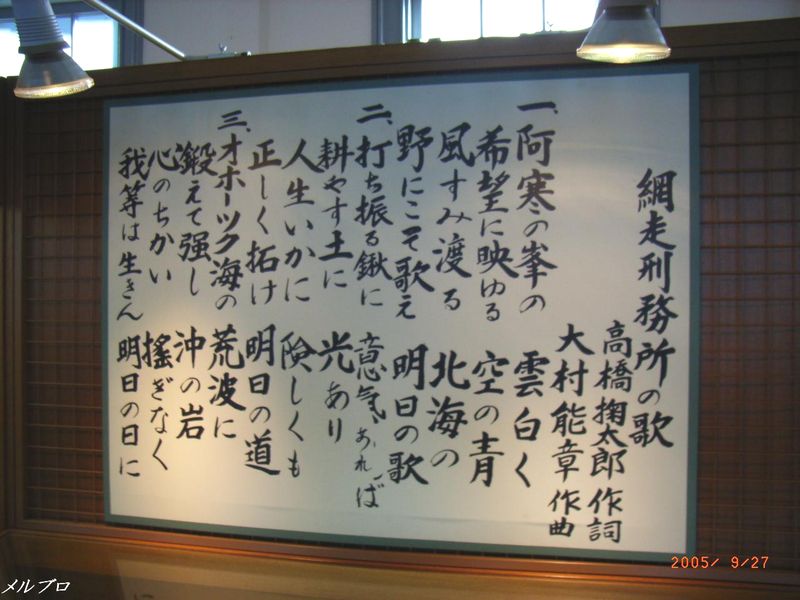 網走刑務所の歌
高橋掬太郎 作詞
大村能章 作曲
一、阿寒の峯の 雲白く
希望に映ゆる 空の青
風すみ渡る 北海の
野にこそ歌え 明日の歌
二、打ち振る鍬に 意気あれば
耕やす土に 光あり
人生いかに 険しくも
正しく拓け 明日の道
三、オホーツク海の 荒波に
鍛えて强し 沖の岩
心のちかい 搖ぎなく
我等は生きん 明日の日に
2005/ 9/27
メルブロ